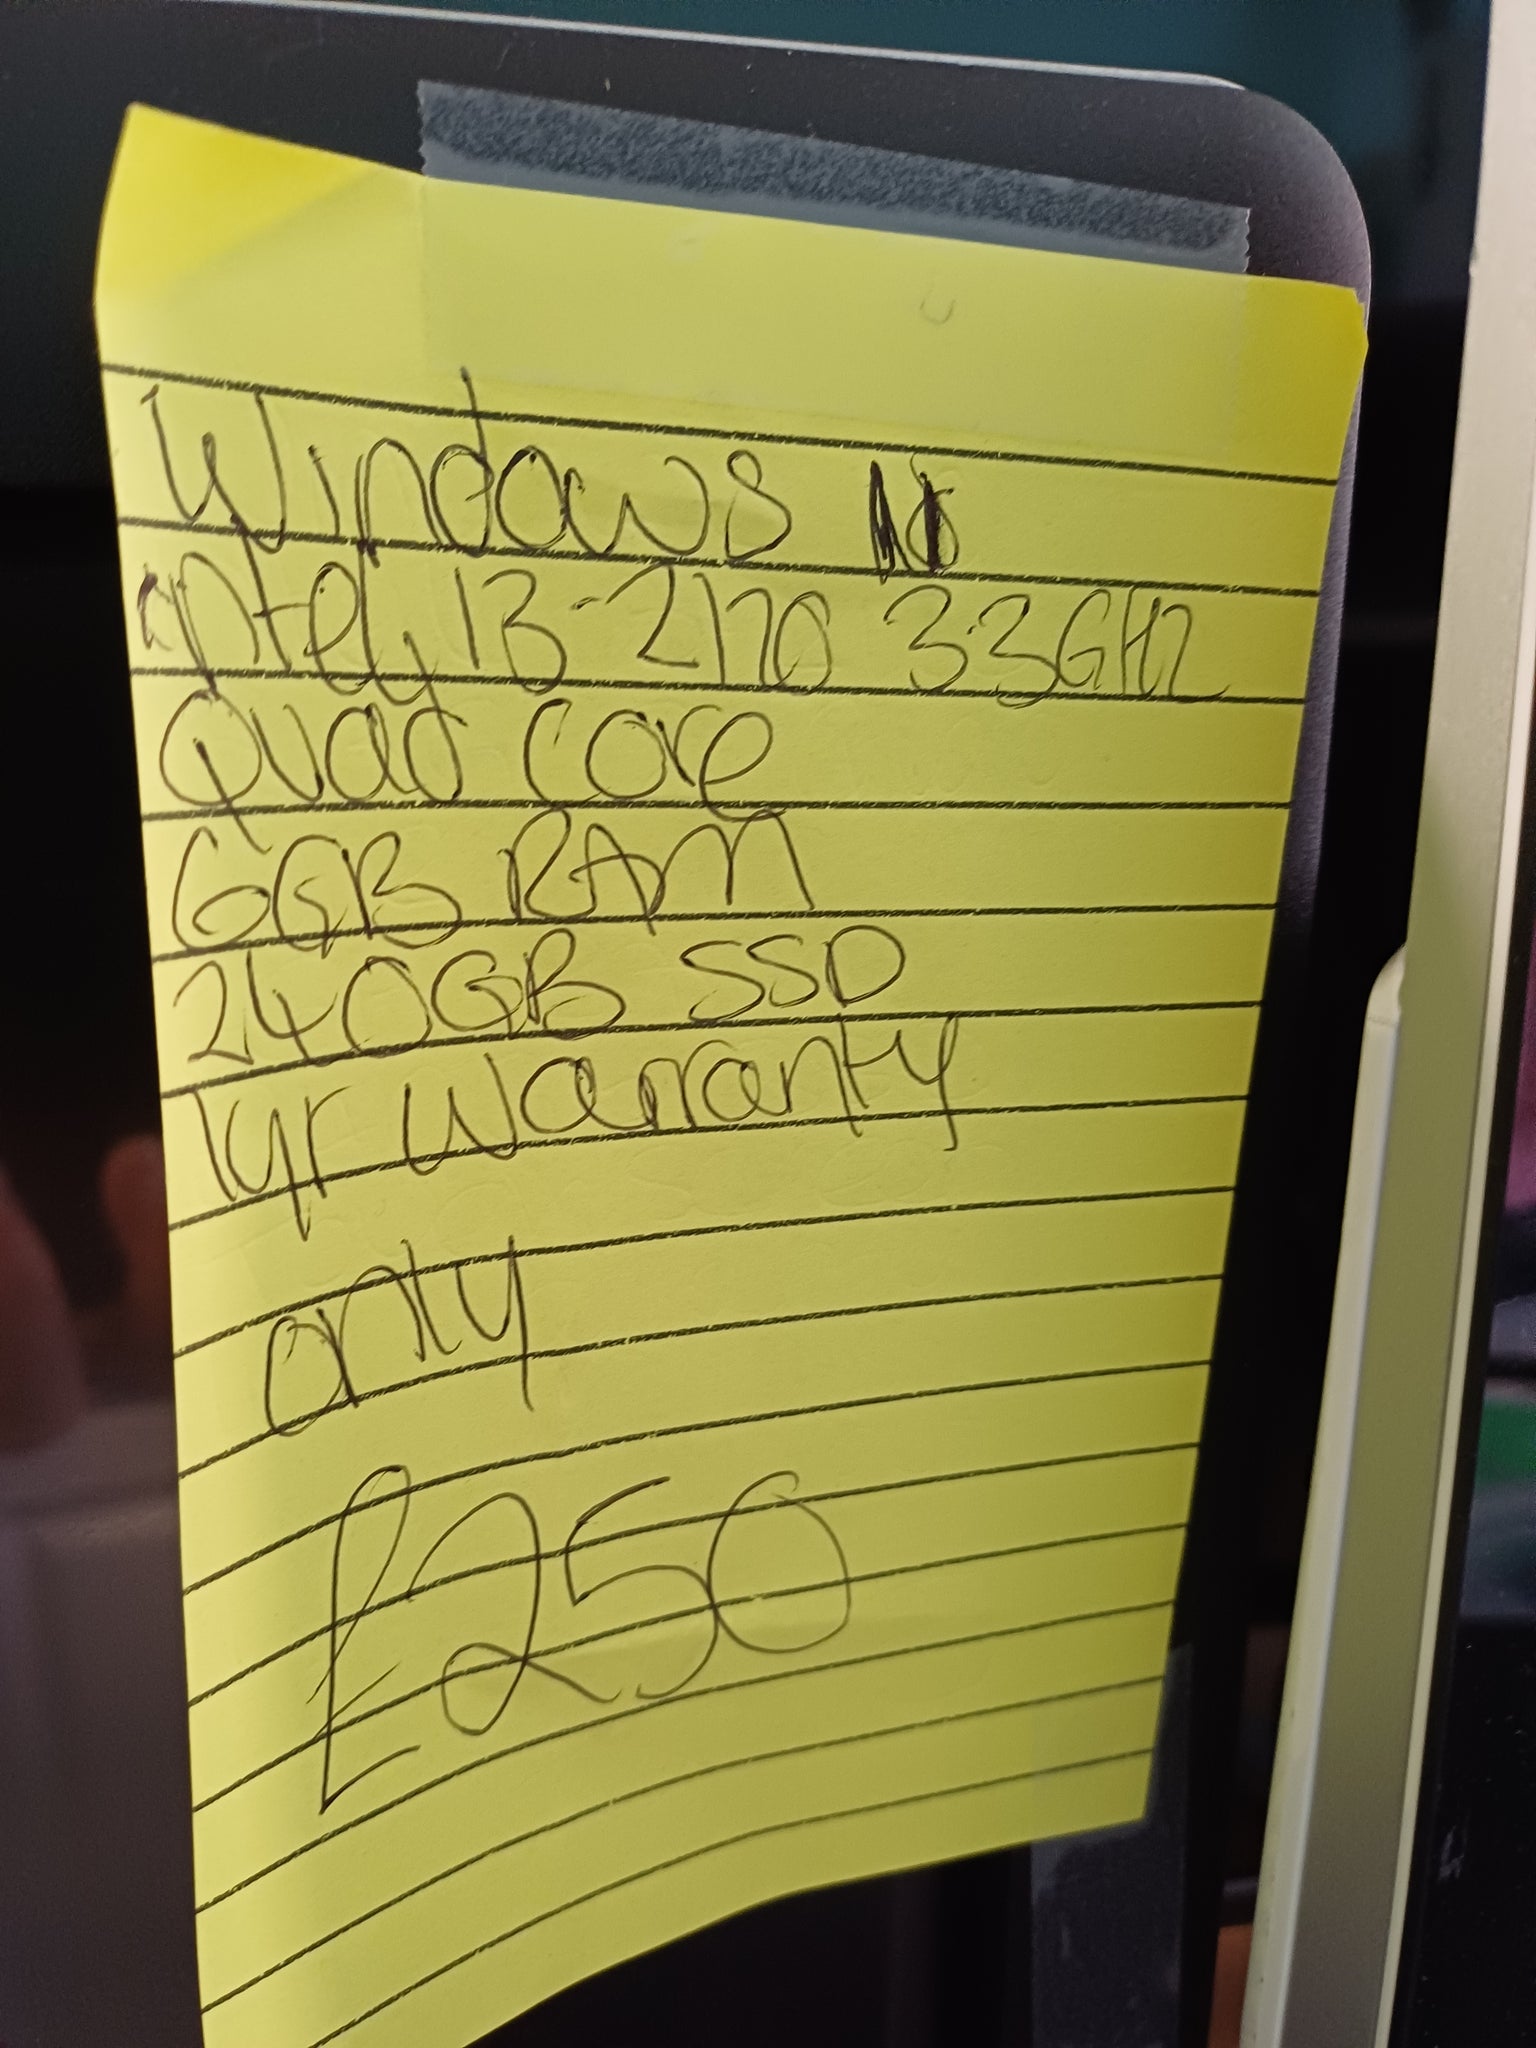 Windows 10
intel i3-2120 3.3GHz
Quad core
6GB RAM
240GB SSD
1yr warranty
only
£250